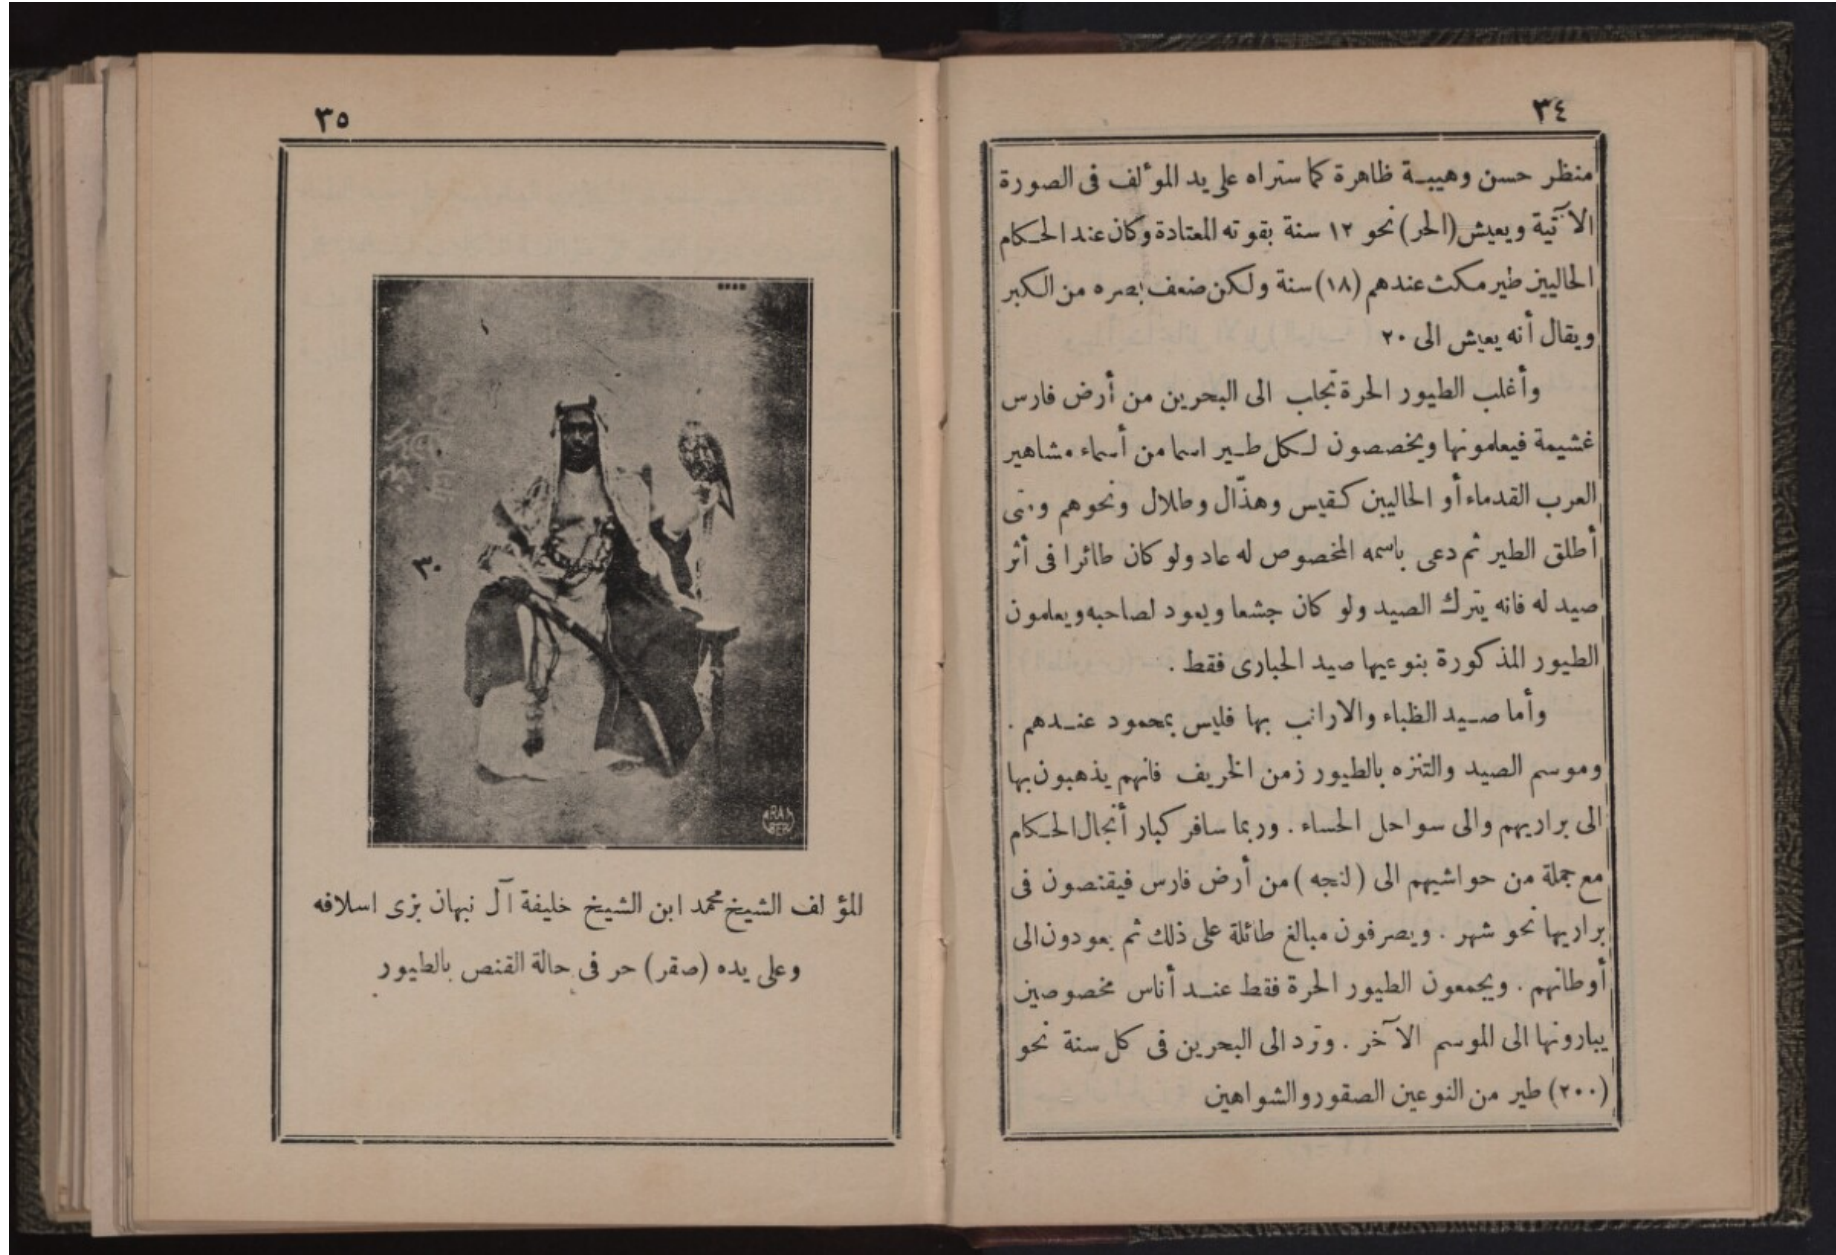 ٣٤
منظر حسن وهيبة ظاهرة كما ستراه على يد المؤلف فى الصورة
الآتية ويعيش (الحر) نحو ١٢ سنة بقوته المعتادة وكان عند الحكام
الحاليين طير مكث عندهم (١٨) سنة ولكن ضعف بصره من الكبر
ويقال أنه يعيش الى ٢٠
وأغلب الطيور الحرة تجلب الى البحرين من أرض فارس
غشيمة فيعلمونها ويخصصون لكل طير اسما من أسماء مشاهير
العرب القدماء أو الحاليين كقيس وهذّال وطلال ونحوهم ومتى
أطلق الطير ثم دعى باسمه المخصوص له عاد ولو كان طائرا فى أثر
صيد له فانه يترك الصيد ولو كان جشعا ويعود لصاحبه ويعلمون
الطيور المذكورة بنوعيها صيد الحبارى فقط .
وأما صيد الظباء والارانب بها فليس بمحمود عندهم .
وموسم الصيد والتنزه بالطيور زمن الخريف فانهم يذهبون بها
الى براريهم والى سواحل الحساء . وربما سافر كبار أنجال الحكام
مع جملة من حواشيهم الى (لنجه) من أرض فارس فيقنصون فى
براريها نحو شهر . ويصرفون مبالغ طائلة على ذلك ثم يعودون الى
أوطانهم . ويجمعون الطيور الحرة فقط عند أناس مخصوصين
يبارونها الى الموسم الآخر . وترد الى البحرين فى كل سنة نحو
(٢٠٠) طير من النوعين الصقور والشواهين
٣٥
٣٠
المؤلف الشيخ محمد ابن الشيخ خليفة آل نبهان بزى اسلافه
وعلى يده (صقر) حر فى حالة القنص بالطيور